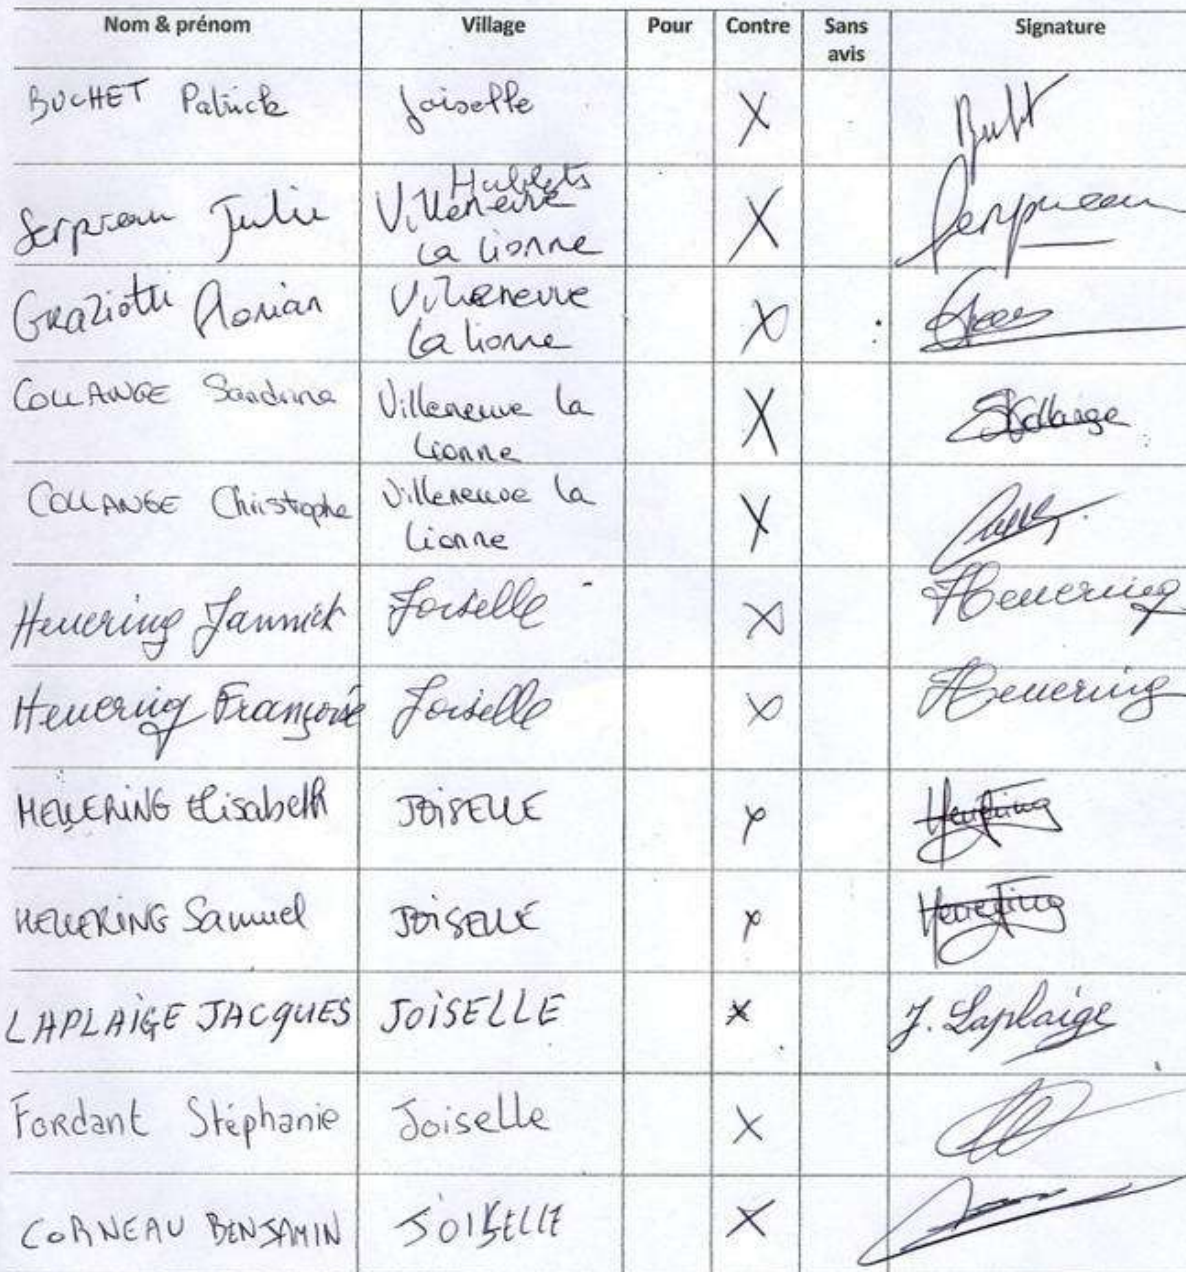 Nom & prénom Village Pour Contre Sans avis Signature
BUCHET Patrick Joiselle X
Serpreau Julie Villeneuve la Lionne X Serpreau
Graziotti Florian Villeneuve la Lionne X
COLLANGE Sandrine Villeneuve la Lionne X SCollange
COLLANGE Christophe Villeneuve la Lionne X
Heuering Jannick Joiselle X Heuering
Heuering Françoise Joiselle X Heuering
HEUERING Elisabeth JOISELLE X Heuering
HEUERING Samuel JOISELLE X Heuering
LAPLAIGE JACQUES JOISELLE X J. Laplaige
Fordant Stéphanie Joiselle X
CORNEAU BENJAMIN JOISELLE X